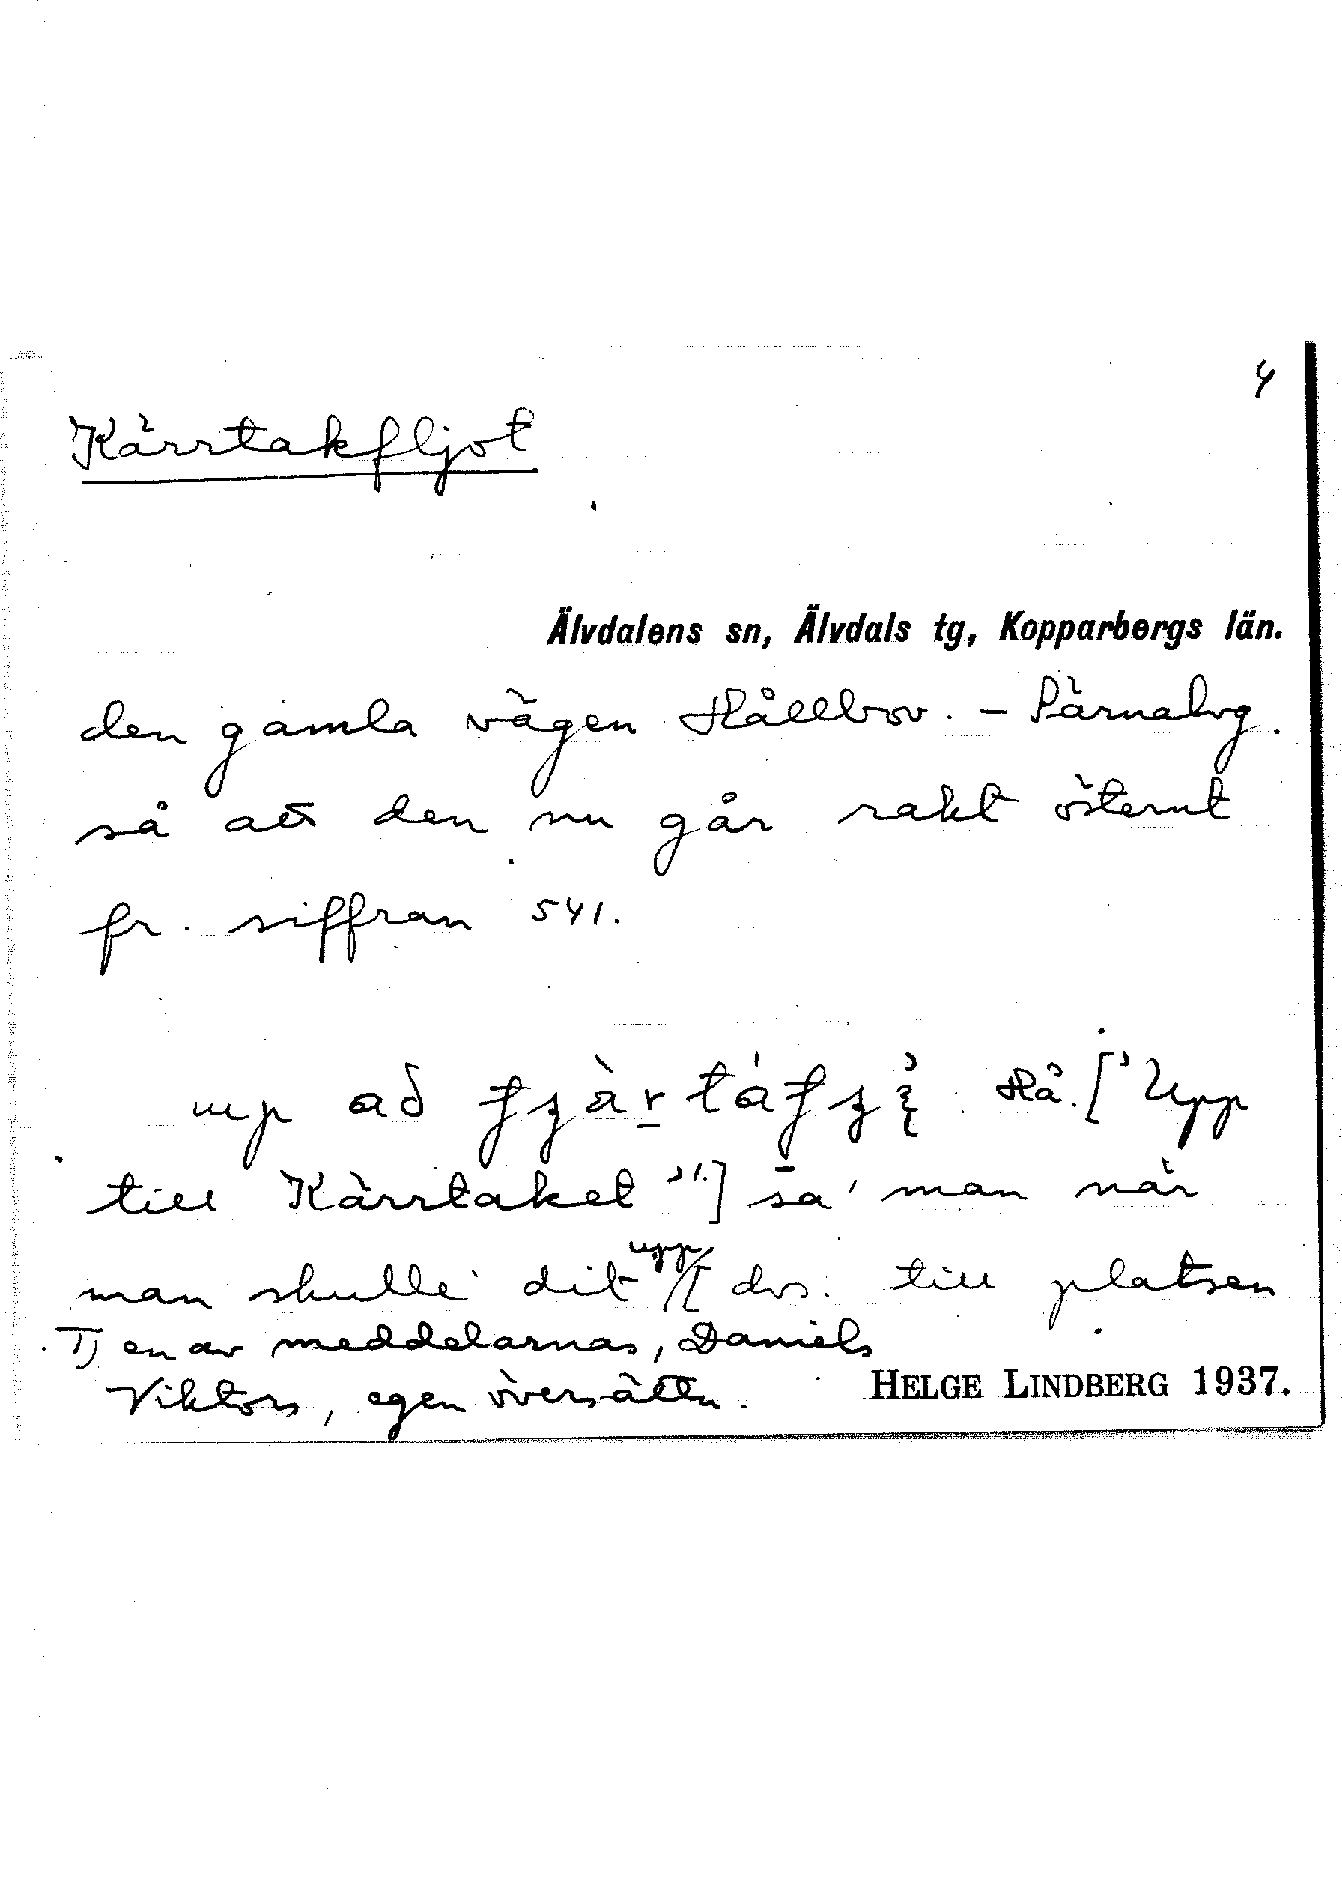 4
Kärrtakfljot
Älvdalens sn, Älvdals tg, Kopparbergs län.
den gamla vägen Hållbov. – Pärnalvg.
så att den nu går rakt österut
fr. siffran 541.
up að Hå. ['Upp
till Kärrtaket' 1.] sa' man när
man skulle dit upp [dvs. till platsen
1) en av meddelarnas, Daniels
Viktors, egen översättn.
HELGE LINDBERG 1937.